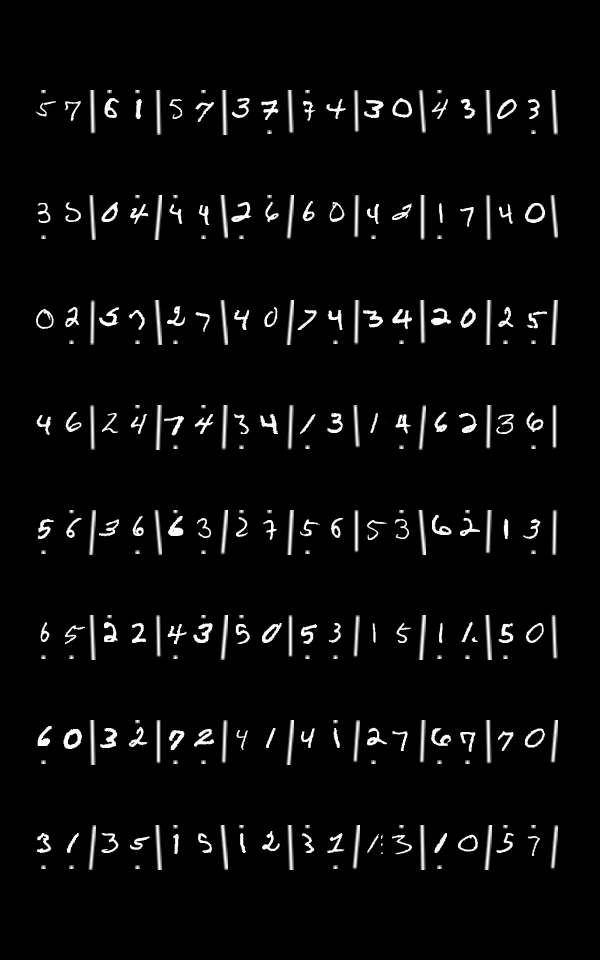 5 7 | 6 1 | 5 7 | 3 7 | 7 4 | 3 0 | 4 3 | 0 3 |
3 5 | 0 4 | 4 4 | 2 6 | 6 0 | 4 2 | 1 7 | 4 0 |
0 2 | 5 7 | 2 7 | 4 0 | 7 4 | 3 4 | 2 0 | 2 5 |
4 6 | 2 4 | 7 4 | 3 4 | 1 3 | 1 4 | 6 2 | 3 6 |
5 6 | 3 6 | 6 3 | 2 7 | 5 6 | 5 3 | 6 2 | 1 3 |
6 5 | 2 2 | 4 3 | 5 0 | 5 3 | 1 5 | 1 1 | 5 0 |
6 0 | 3 2 | 7 2 | 4 1 | 4 1 | 2 7 | 6 7 | 7 0 |
3 1 | 3 5 | 1 5 | 1 2 | 3 1 | 1 3 | 1 0 | 5 7 |